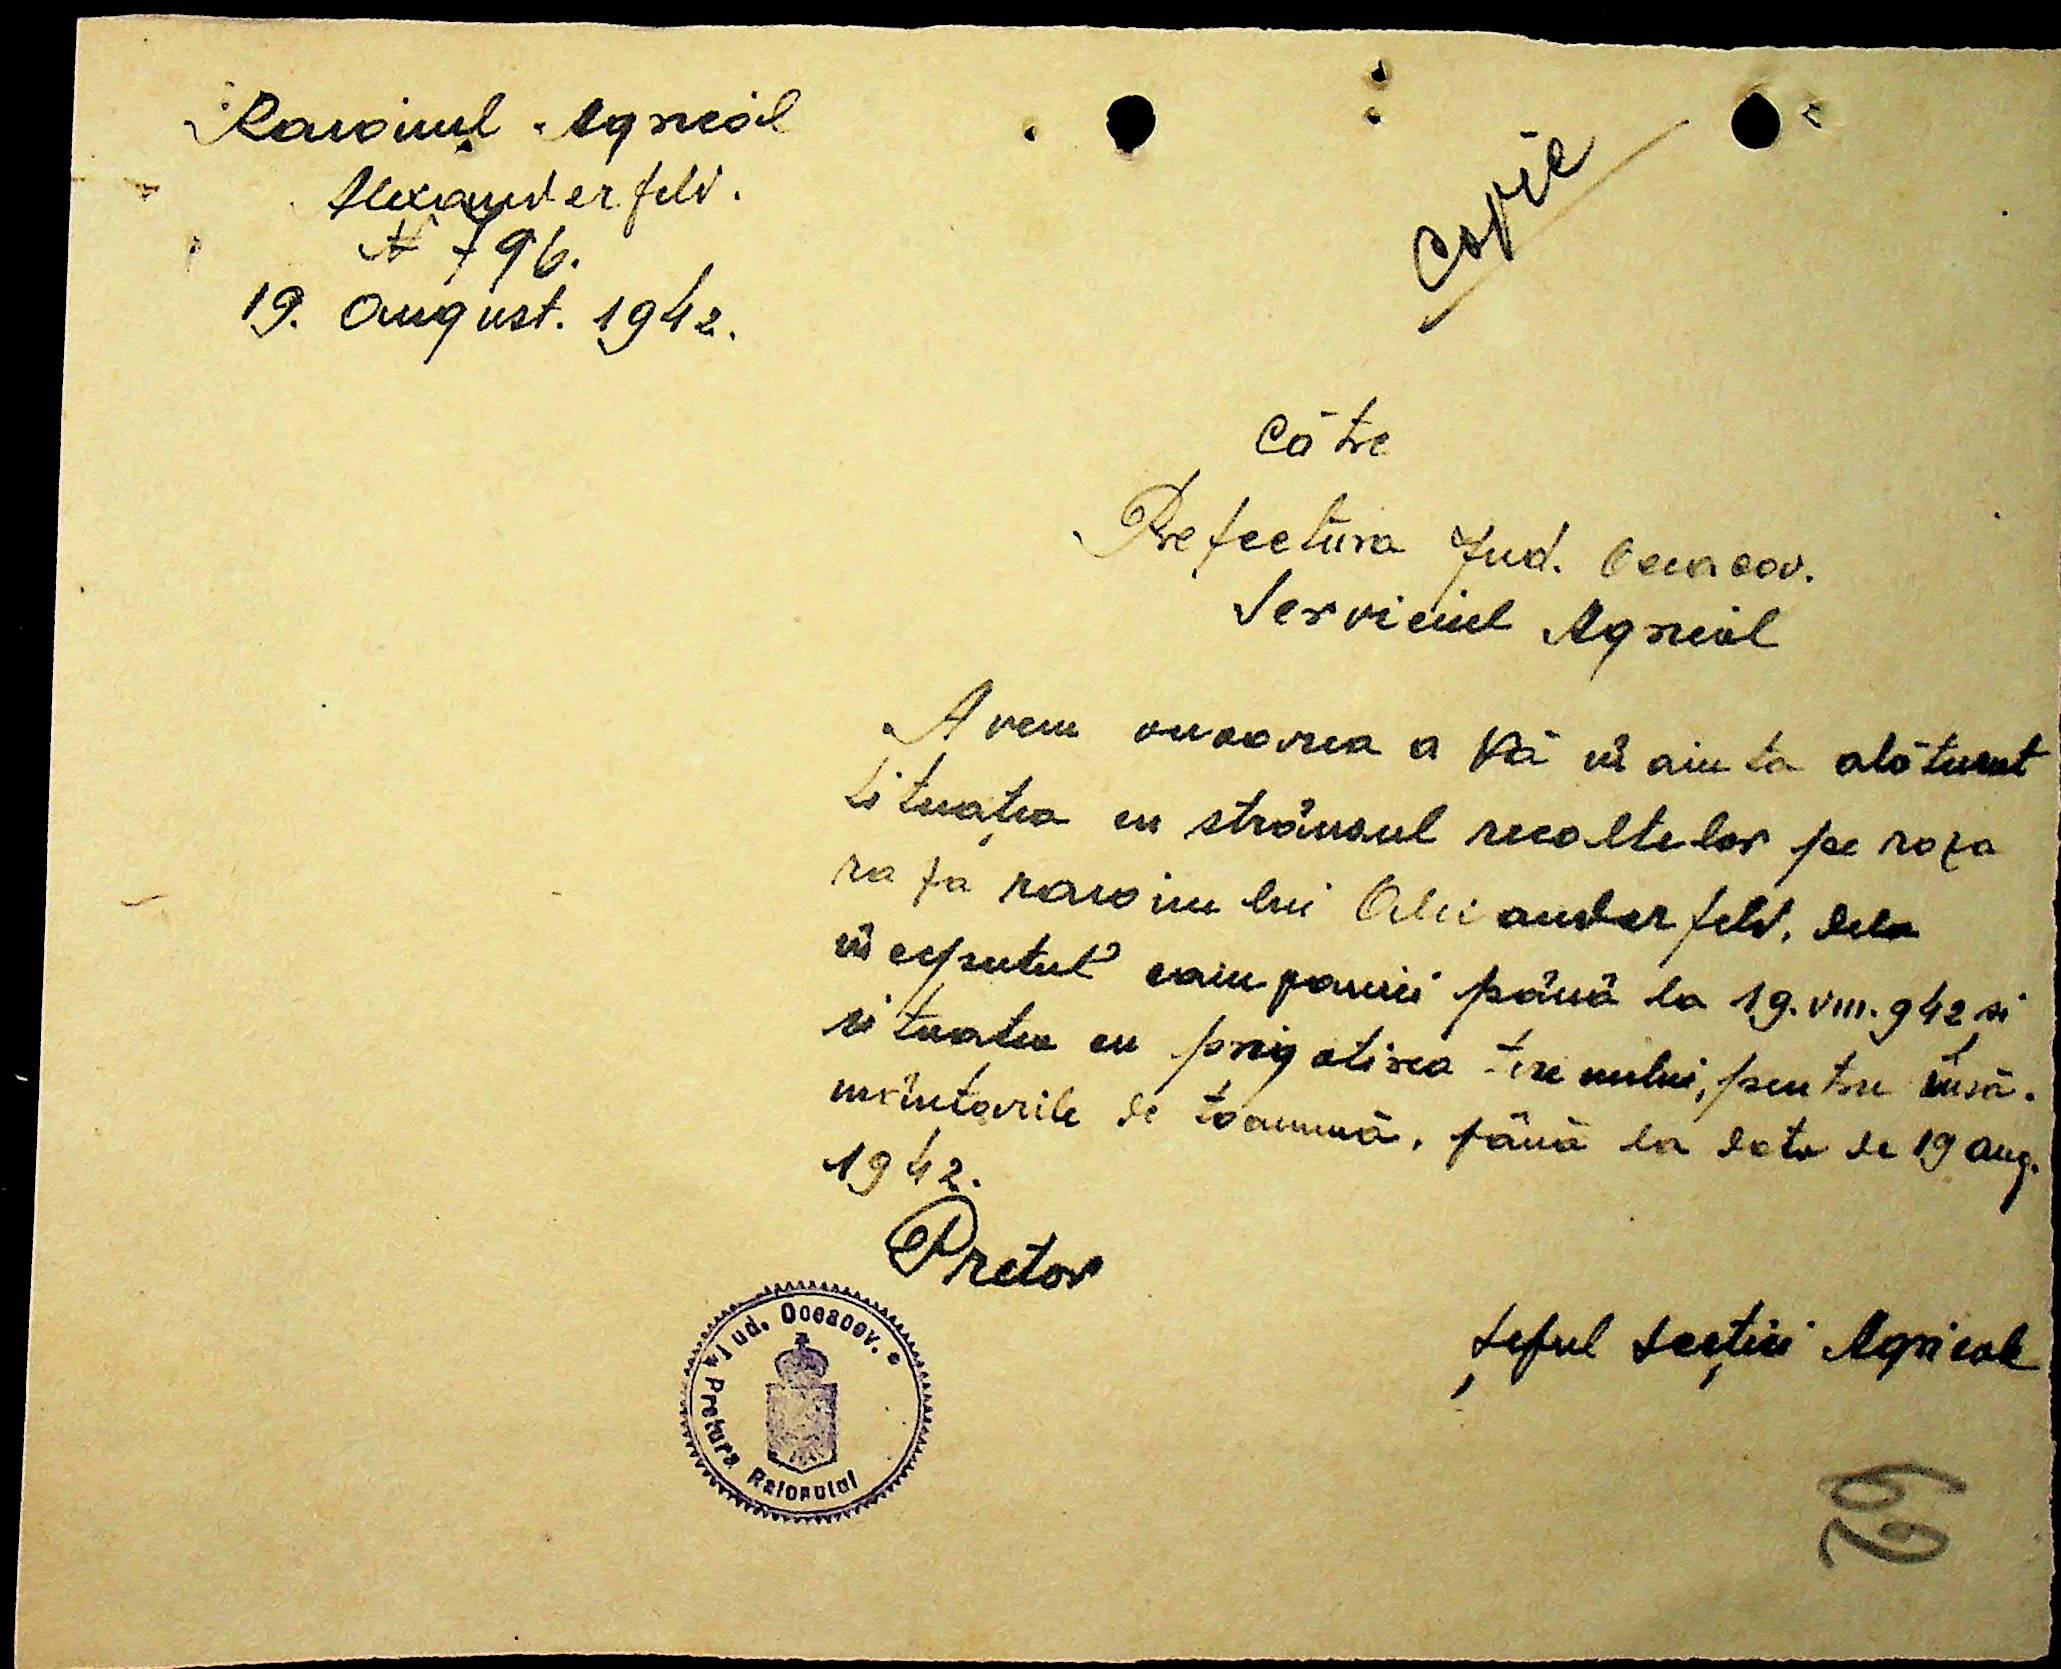 Raionul Agricol
Alexanderfeld.
N 796.
19. August. 1942.
Copie
Către
Prefectura Jud. Oceacov.
Serviciul Agricol
Avem onoarea a Vă înainta alăturat
situația cu strânsul recoltelor pe raza
raza raionului Alexanderfeld, dela
începutul campaniei până la 19.VIII.942 și
situatia cu prigatirea terenului, pentru însă-
mințările de toamnă, până la data de 19 Aug.
1942.
Pretor
Șeful Secției Agricole
Jud. Oceacov.
Pretura Raionului
69